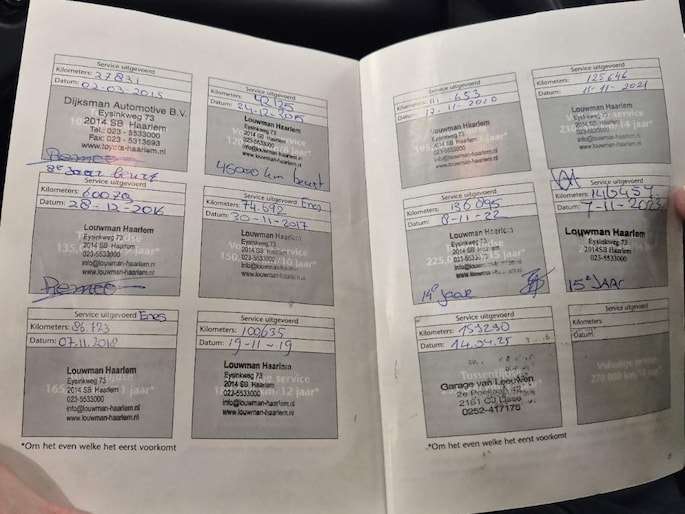 Service uitgevoerd
Kilometers: 27831
Datum: 02-03-2015
Dijksman Automotive B.V.
Eysinkweg 73
2014 SB Haarlem
Tel.: 023 - 5533000
Fax: 023 - 5313693
www.toyota-haarlem.nl
8e Jaar beurt
Service uitgevoerd
Kilometers: 42125
Datum: 24-12-2015
Louwman Haarlem
Eysinkweg 73
2014 SB Haarlem
023-5533000
info@louwman-haarlem.nl
www.louwman-haarlem.nl
45000 km beurt
Service uitgevoerd
Kilometers: 60073
Datum: 28-12-2016
Louwman Haarlem
Eysinkweg 73
2014 SB Haarlem
023-5533000
info@louwman-haarlem.nl
www.louwman-haarlem.nl
Service uitgevoerd Enes
Kilometers: 74.592
Datum: 30-11-2017
Louwman Haarlem
Eysinkweg 73
2014 SB Haarlem
023-5533000
info@louwman-haarlem.nl
www.louwman-haarlem.nl
Service uitgevoerd Enes
Kilometers: 86.723
Datum: 07.11.2018
Louwman Haarlem
Eysinkweg 73
2014 SB Haarlem
023-5533000
info@louwman-haarlem.nl
www.louwman-haarlem.nl
Service uitgevoerd
Kilometers: 100635
Datum: 19-11-19
Louwman Haarlem
Eysinkweg 73
2014 SB Haarlem
023-5533000
info@louwman-haarlem.nl
www.louwman-haarlem.nl
*Om het even welke het eerst voorkomt
Service uitgevoerd
Kilometers: 111-653
Datum: 17-11-2020
Louwman Haarlem
Eysinkweg 73
2014 SB Haarlem
023-5533000
info@louwman-haarlem.nl
www.louwman-haarlem.nl
Service uitgevoerd
Kilometers: 125646
Datum: 11-11-2021
Louwman Haarlem
Eysinkweg 73
2014 SB Haarlem
023-5533000
info@louwman-haarlem.nl
www.louwman-haarlem.nl
Service uitgevoerd
Kilometers: 136095
Datum: 8-11-22
Louwman Haarlem
Eysinkweg 73
2014 SB Haarlem
info@louwman-haarlem.nl
www.louwman-haarlem.nl
14e jaar
Service uitgevoerd
Kilometers: 146454
Datum: 7-11-2023
Louwman Haarlem
Eysinkweg 73
2014 SB Haarlem
023-5533000
info@louwman-haarlem.nl
www.louwman-haarlem.nl
15e JAAR
Service uitgevoerd
Kilometers: 153290
Datum: 14.04.25
Tussentijdse
Garage van Leeuwen
2e Poellaan 42
2161 CJ Lisse
0252-417175
Service uitgevoerd
Kilometers:
Datum:
Volledige service
270,000 km/18 jaar*
*Om het even welke het eerst voorkomt